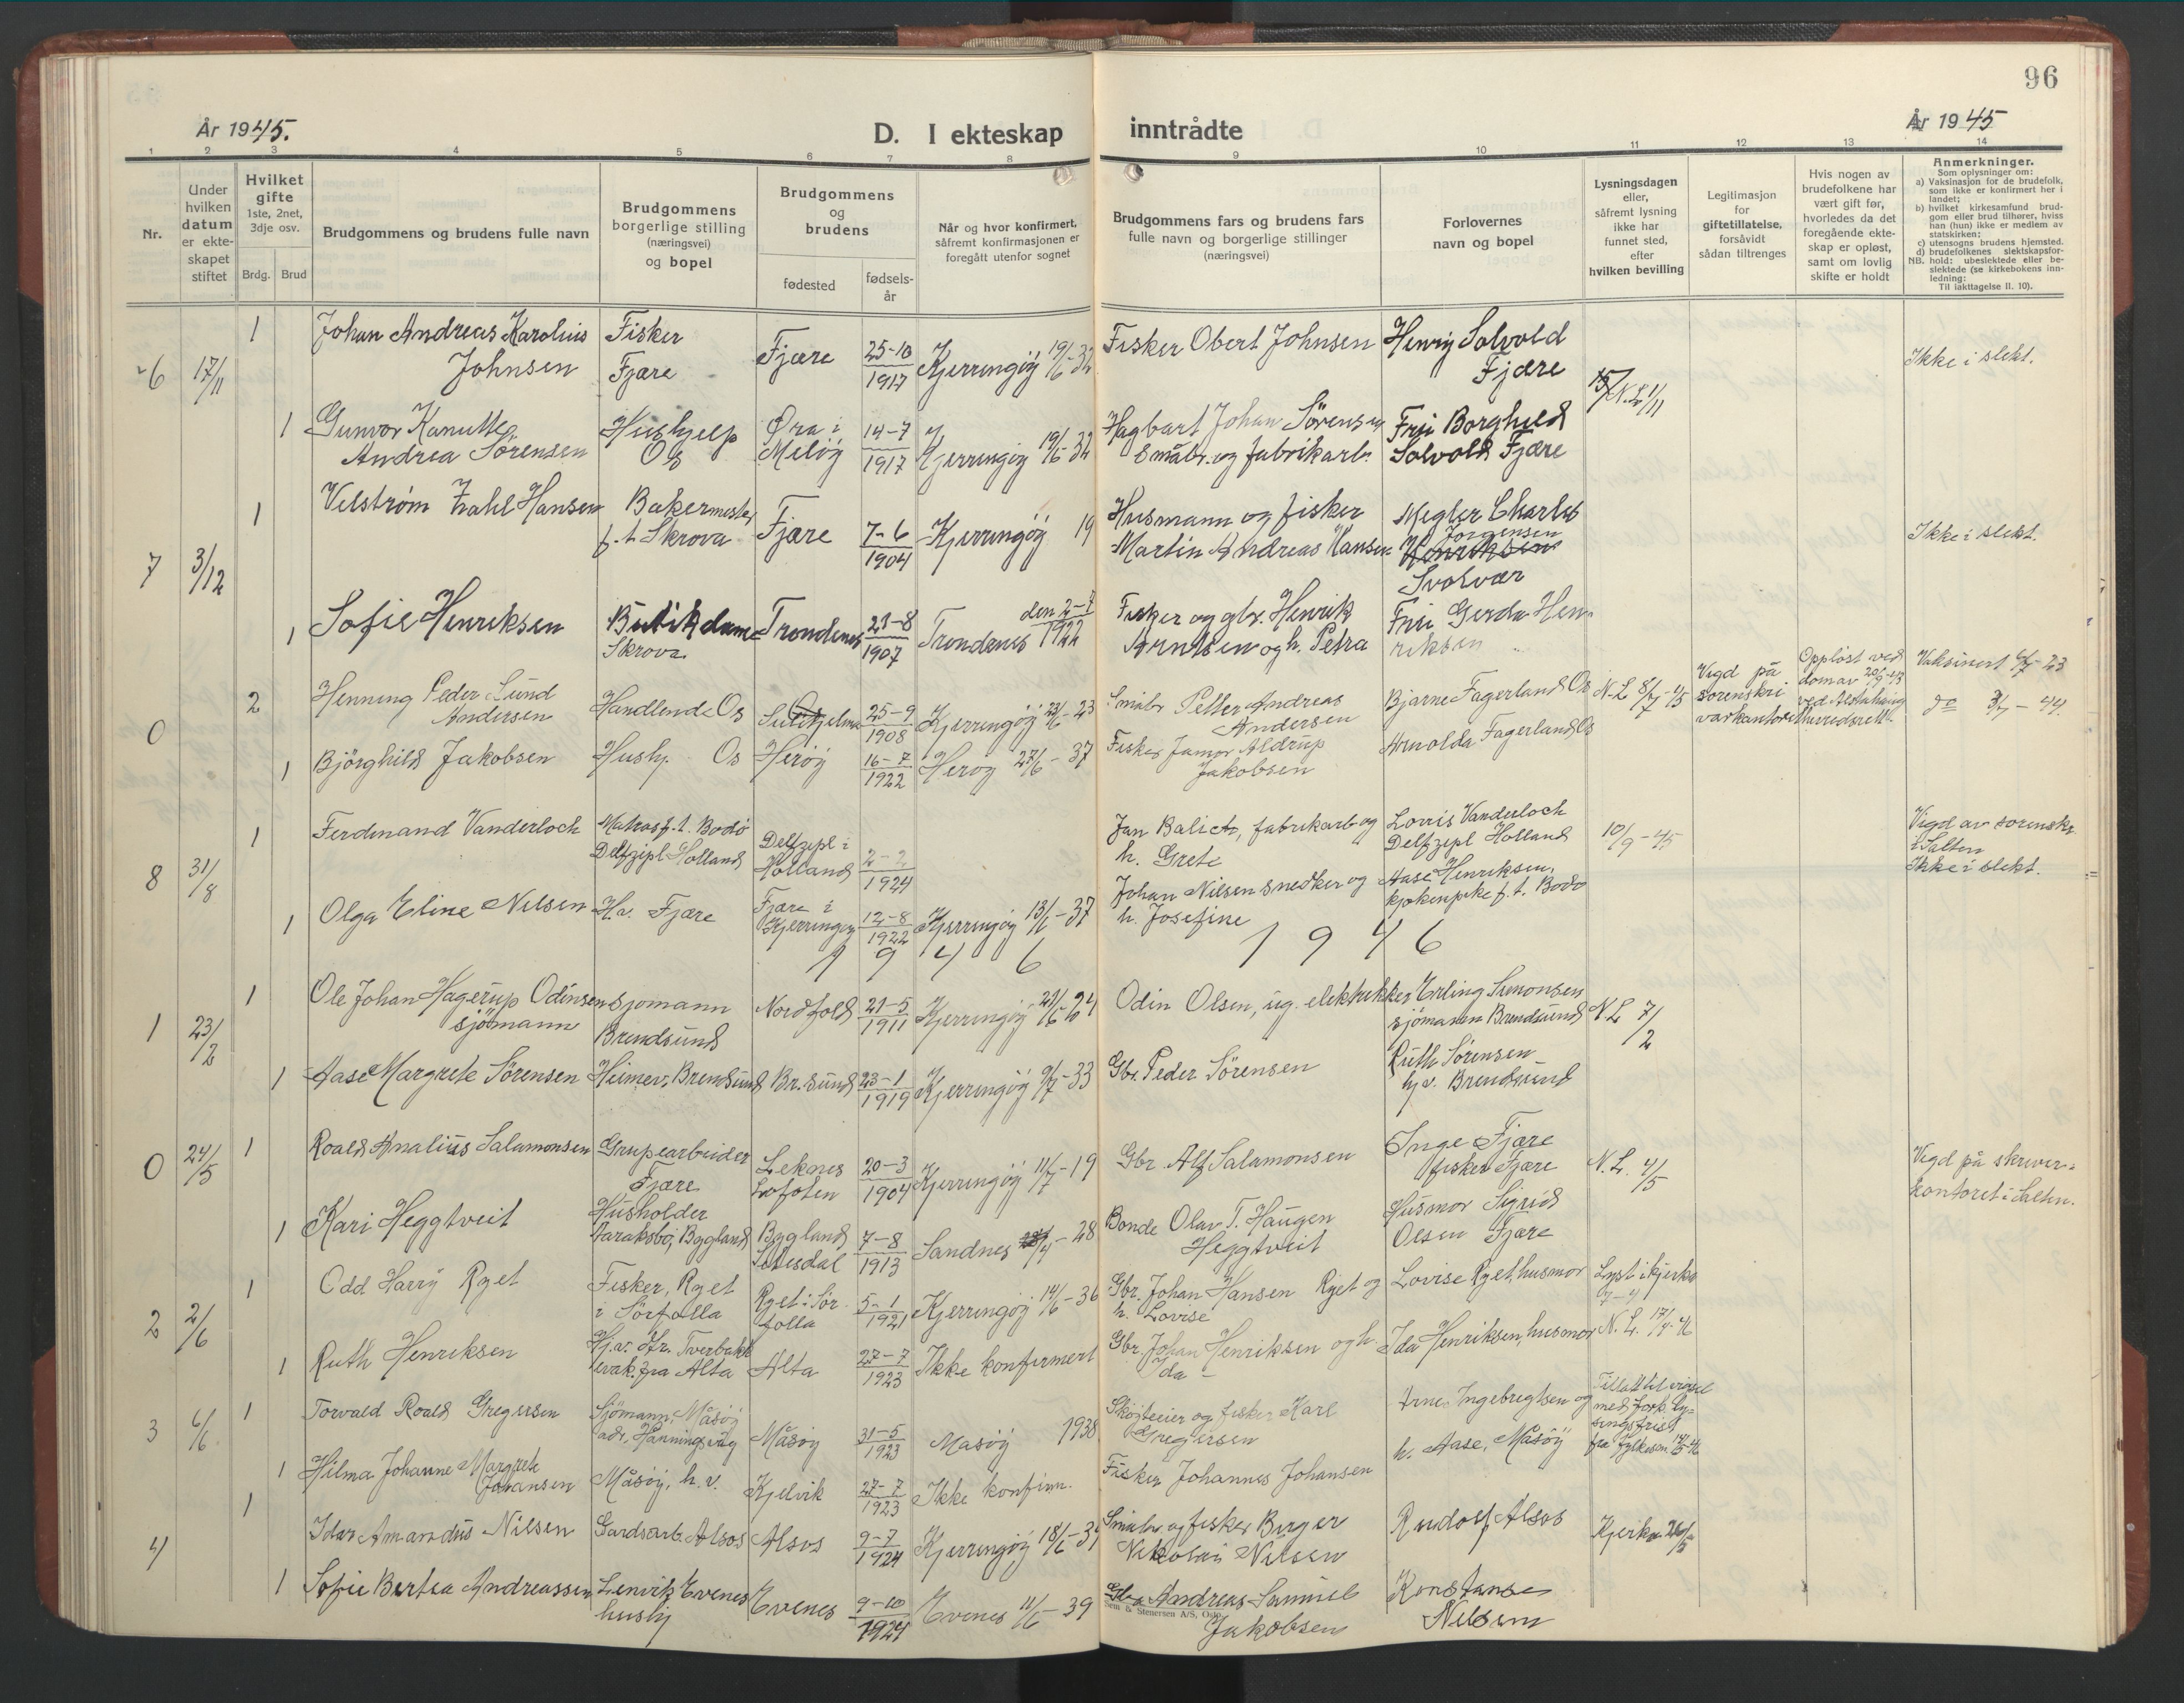 96
År 1945.
D. I ekteskap inntrådte
År 1945
1 2 3 4 5 6 7 8 9 10 11 12 13 14
Nr.
Under hvilken datum er ekteskapet stiftet
Hvilket gifte 1ste, 2net, 3dje osv.
Brdg. Brud
Brudgommens og brudens fulle navn
Brudgommens borgerlige stilling (næringsvei) og bopel
Brudgommens og brudens
fødested
fødsels-år
Når og hvor konfirmert, såfremt konfirmasjonen er foregått utenfor sognet
Brudgommens fars og brudens fars fulle navn og borgerlige stillinger (næringsvei)
Forlovernes navn og bopel
Lysningsdagen eller, såfremt lysning ikke har funnet sted, efter hvilken bevilling
Legitimasjon for giftetillatelse, forsåvidt sådan tiltrenges
Hvis nogen av brudefolkene har vært gift før, hvorledes da det foregående ekteskap er opløst, samt om lovlig skifte er holdt
Anmerkninger.
Som oplysninger om:
a) Vaksinasjon for de brudefolk, som ikke er konfirmert her i landet;
b) hvilket kirkesamfund brudgom eller brud tilhører, hviss han (hun) ikke er medlem av statskirken;
c) utensogns brudens hjemsted.
d) brudefolkenes slektskapsforhold: ubeslektede eller beslektede (se kirkebokens innledning:
NB.
Til iakttagelse II. 10).
6 17/11 1 Johan Andreas Karolius Johnsen Fisker Fjære Fjære 25-10 1917 Kjerringøy 19/6-32 Fisker Obert Johnsen Henry Solvold Fjære N.L. 1/11 Ikke i slekt.
1 Gunvor Kanutte Andrea Sörensen Hushjelp Os Øra i Meløy 14-7 1917 Kjerringöy 19/6-32 Hagbart Johan Sörensen Småbr. og fabrikarb. Fru Borghild Solvold Fjære
7 3/12 1 Velström Zahl Hansen Bakermester f.t Skrova Fjære 7-6 1904 Kjerringöy 19 Husmann og fisker Martin Andreas Hansen Megler Charles Jörgensen Henriksen Svolvær Ikke i slekt.
1 Sofie Henriksen Butikdame Skrova Trondenes 21-8 1907 Trondenes den 2-7 1922 Fisker og gbr. Henrik Arntsen og h. Petra Fru Gerda Henriksen
0 2 Henning Peder Sund Andersen Handlende Os Sulitjelma 25-9 1908 Kjerringöy -23 Småbr Petter Andreas Andersen Bjarne Fagerland Os N.L. Vigd på sorenskriverkontoret Opplöst ved dom av ved Alstahaug herredsrett. Vaksinert -23
1 Björghild Jakobsen Hushj. Os Heröy 16-7 1922 Heröy 27/6-37 Fisker Aldrup Jakobsen Arnolda Fagerland Os do -44.
8 31/8 1 Ferdinand Vanderloch Matros f.t. Bodö Delfzipl Holland Delfzipl i Holland 2-2 1924 Jan Balict, fabrikarb og h. Grete Lovris Vanderloch Delfzipl Holland 10/9-45 Vigd av sorenskr. i Salten Ikke i slekt.
1 Olga Eline Nilsen H.v. Fjære Fjære i Kjerringöy 12-8 1922 Kjerringöy 13/6-37 Johan Nilsen snedker og h. Josefine Aase Henriksen, kjokenpike f.t. Bodö
1946 1946
1 23/2 1 Ole Johan Hagerup Odinsen sjömann Sjomann Brendsund Nordfold 21-5 1911 Kjerringöy Odin Olsen, ug. elektriker Erling Simonsen sjömann Brendsund N.L 7/2
1 Aase Margrete Sörensen Heimev. Brendsund Br.sund 23-1 1919 Kjerringöy 9/7-33 Gbr. Peder Sörensen Ruth Sörensen hj v. Brendsund
0 24/5 1 Roald Analius Salamonsen Grupearbeider Fjære Leknes Lofoten 20-3 1904 Kjerringöy 11/7-19 Gbr. Alf Salamonsen Inge Fjære fisker Fjære N.L. 4/5 Vigd på skriverkontoret i Salten.
1 Kari Heggtveit Husholder Aaraksbö, Bygland Bygland Setesdal 7-8 1913 Sandnes -28 Bonde Olav T. Haugen Heggtveit Husmor Sigrid Olsen Fjære
2 2/6 1 Odd Harry Ryet Fisker, Ryet i Sörfolla Ryet i Sörfolla 5-1 1921 Kjerringöy 14/6-36 Gbr. Johan Hansen Ryet og h. Lovise Lovise Ryet, husmor Lyst i kjerka 7-4
1 Ruth Henriksen Hj.v. evak. fra Alta Alta 27-7 1923 Ikke konfirmert Gbr. Johan Henriksen og h. Ida Ida Henriksen, husmor N.L. 17/4-46
3 6/6 1 Torvald Roald Gregersen Sjömann, Måsöy adr. Honningsvåg Måsöy 31-5 1923 Masöy 1938 Sköyteeier og fisker Karl Gregersen Arne Ingebregtsen og h. Aase, Måsöy Tillatt til vigsel med fork. lysingsfrist fra fylkesm.
1 Hilma Johanne Margrete Johansen Måsöy, h.v. Kjelvik 27-7 1923 Ikke konfirm. Fisker Johannes Johansen
4 1 Idar Amandus Nilsen Gardsarb. Alsos Alsos 9-7 1924 Kjerringöy 18/6-39 Småbr. og fisker Birger Nikolai Nilsen Rudolf Alsos Kjerka 26/5
1 Sofie Bertea Andreassen Lenvik Evenes hushj Evenes 9-10 1924 Evenes 11/6-39 Gbr. Andreas Samuel Jakobsen Konstanse Nilsen
Sem & Stenersen A/S, Oslo